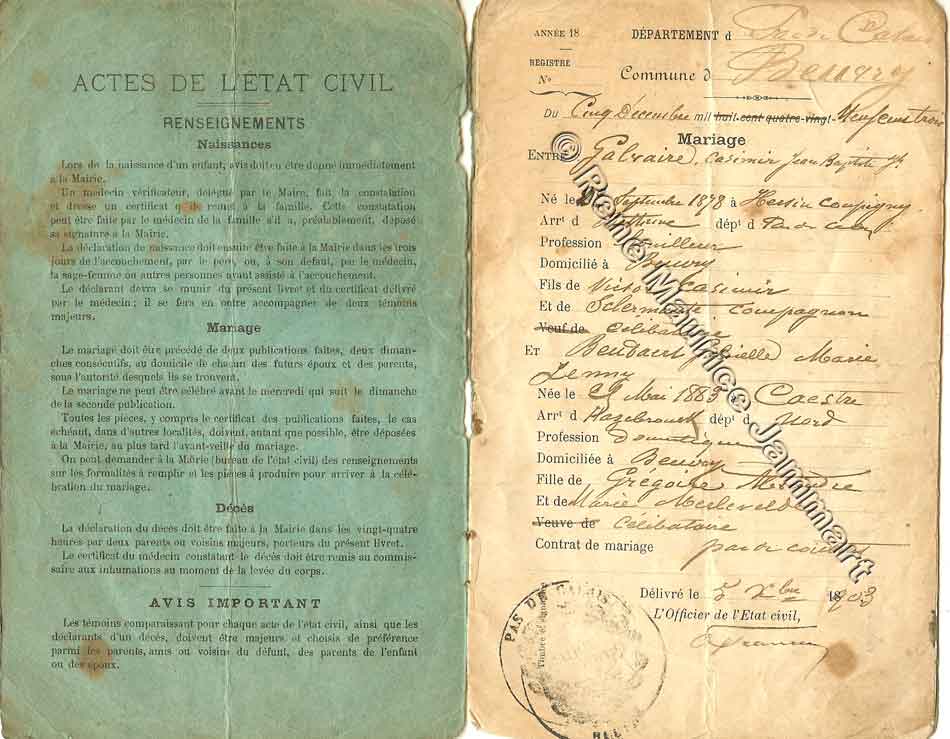 ACTES DE L'ÉTAT CIVIL
RENSEIGNEMENTS
Naissances
Lors de la naissance d'un enfant, avis doit en être donné immédiatement
à la Mairie.
Un médecin vérificateur, délégué par le Maire, fait la constatation
et dresse un certificat qu'il remet à la famille. Cette constatation
peut être faite par le médecin de la famille s'il a, préalablement, déposé
sa signature à la Mairie.
La déclaration de naissance doit ensuite être faite à la Mairie dans les trois
jours de l'accouchement, par le père, ou, à son défaut, par le médecin,
la sage-femme ou autres personnes ayant assisté à l'accouchement.
Le déclarant devra se munir du présent livret et du certificat délivré
par le médecin ; il se fera en outre accompagner de deux témoins
majeurs.
Mariage
Le mariage doit être précédé de deux publications faites, deux diman-
ches consécutifs, au domicile de chacun des futurs époux et des parents,
sous l'autorité desquels ils se trouvent.
Le mariage ne peut être célébré avant le mercredi qui suit le dimanche
de la seconde publication.
Toutes les pièces, y compris le certificat des publications faites, le cas
échéant, dans d'autres localités, doivent, autant que possible, être déposées
à la Mairie, au plus tard l'avant-veille du mariage.
On peut demander à la Mairie (bureau de l'état civil) des renseignements
sur les formalités à remplir et les pièces à produire pour arriver à la célé-
bration du mariage.
Décès
La déclaration du décès doit être faite à la Mairie dans les vingt-quatre
heures par deux parents ou voisins majeurs, porteurs du présent livret.
Le certificat du médecin constatant le décès doit être remis au commis-
saire aux inhumations au moment de la levée du corps.
AVIS IMPORTANT
Les témoins comparaissant pour chaque acte de l'état civil, ainsi que les
déclarants d'un décès, doivent être majeurs et choisis de préférence
parmi les parents, amis ou voisins du défunt, des parents de l'enfant
ou des époux.
ANNÉE 18
DÉPARTEMENT d Pas de Calais
REGISTRE
No
Commune d Beuvry
Du Cinq Décembre mil huit cent quatre-vingt- Neuf cent trois
Mariage
ENTRE Galvaire, Casimir Jean Baptiste Jh
Né le Septembre 1878 à Hersin Coupigny
Arrt d Béthune dépt d Pas de Calais
Profession Houilleur
Domicilié à Beuvry
Fils de Victor Casimir
Et de Compagnon
Veuf de Célibataire
ET Gabrielle Marie
Jenny
Née le Mai 1883 à Caestre
Arrt d Hazebrouck dépt d Nord
Profession Domestique
Domiciliée à Beuvry
Fille de Grégoire
Et de Marie
Veuve de Célibataire
Contrat de mariage pas de contrat
Délivré le 5 Xbre 1903
L'Officier de l'Etat civil,
PAS DE CALAIS
Timbre et signature
© René Maurice Jammart